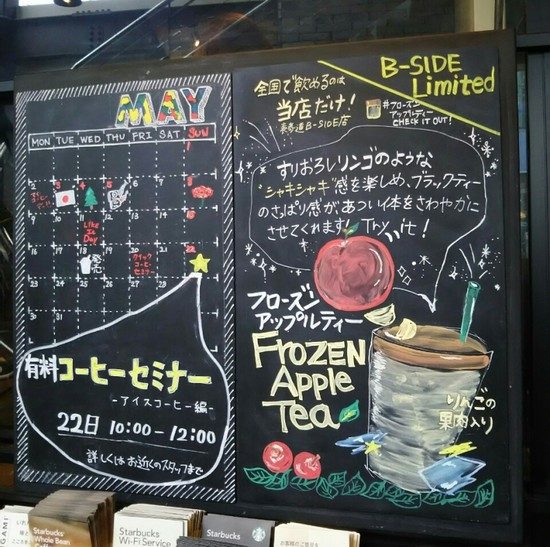 MAY
MON TUE WED THU FRI SAT SUN
1
2 3 4 5 6 7 8
9 10 11 12 13 14 15
Like It Day
16 17 18 19 20 21 22
発売
クイック
コーヒー
セミナー
有料コーヒーセミナー
-アイスコーヒー編-
22日 10:00-12:00
詳しくはお近くのスタッフまで
B-SIDE
Limited
全国で飲めるのは
当店だけ!
表参道B-SIDE店
#フローズン
アップルティー
CHECK IT OUT!
すりおろしリンゴのような
"シャキシャキ"感を楽しめ、ブラックティー
のさっぱり感が、あつい体をさわやかに
させてくれます! Try it!
フローズン
アップルティー
FROZEN
Apple
Tea
りんごの
果肉入り
Starbucks
Whole Bean
Starbucks
Wi-Fi Service
Starbucks